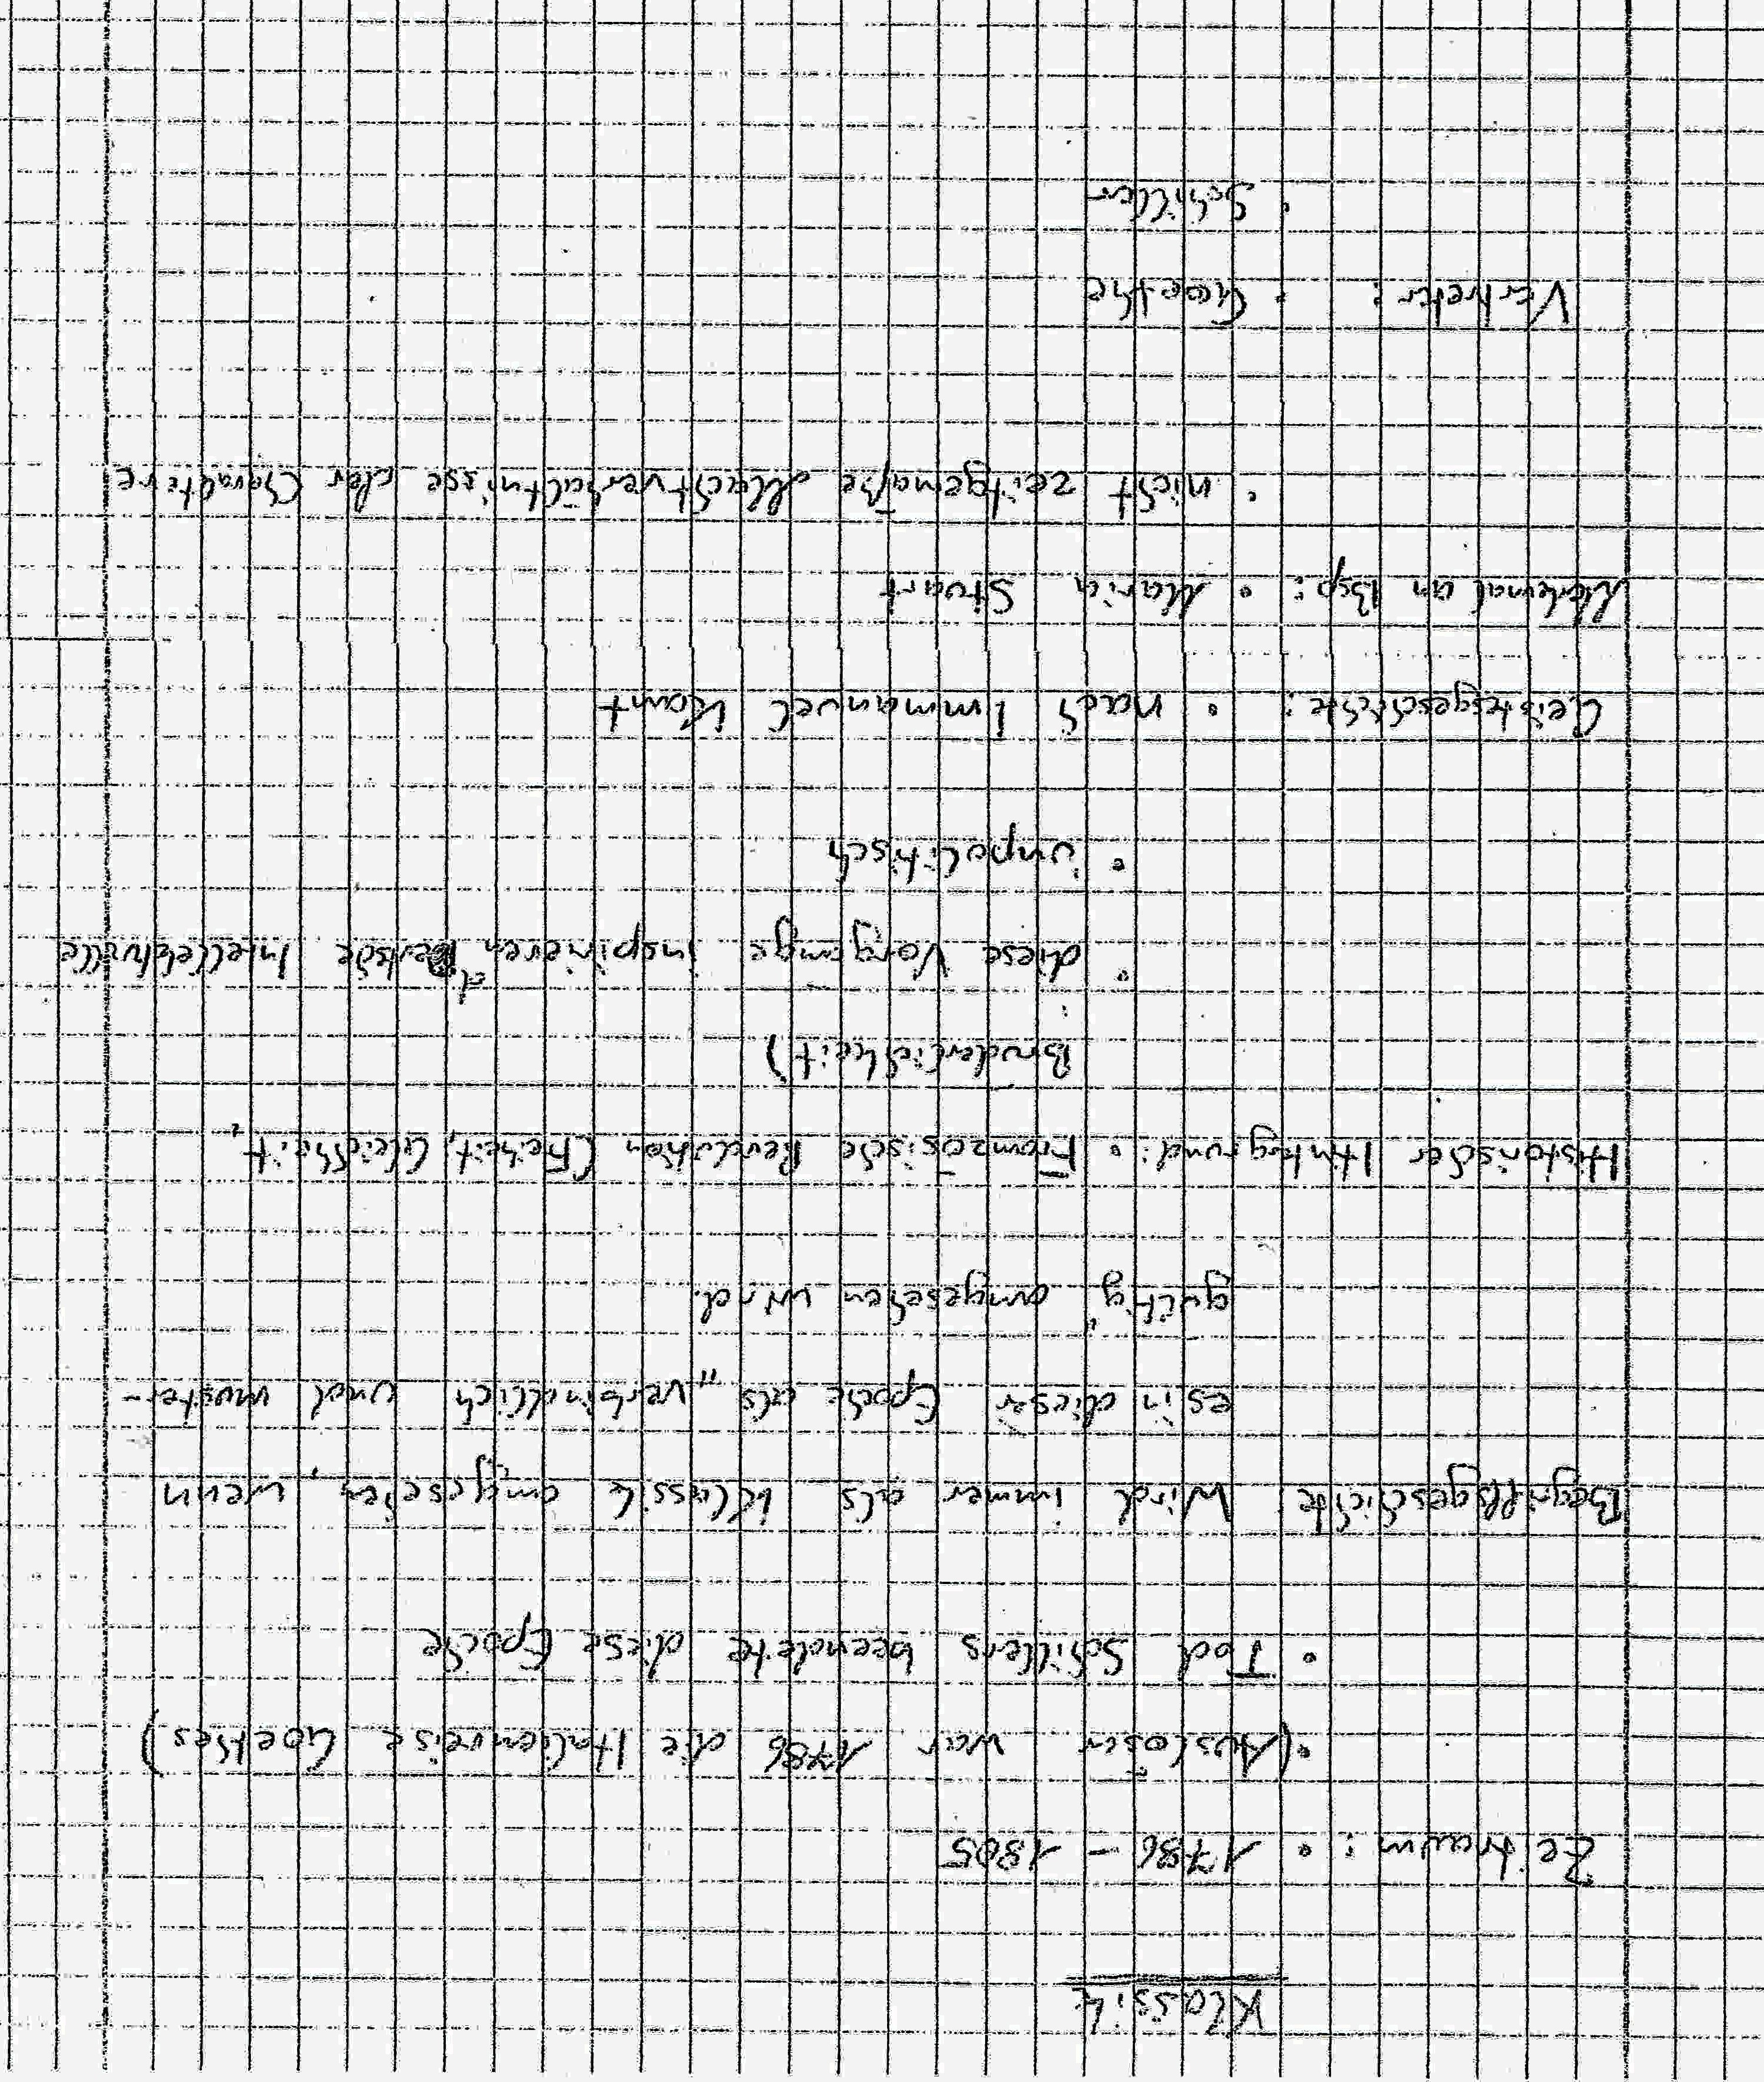 Klassik
Zeitraum: • 1786 – 1805
• (Auslöser war 1786 die Italienreise Goethes)
• Tod Schillers beendete diese Epoche
Begriffsgeschichte: Wird immer als Klassik angesehen, wenn
es in dieser Epoche als "verbindlich und muster-
gültig" angesehen wird.
Historischer Hintergrund: • Französische Revolution (Freiheit, Gleichheit,
Brüderlichkeit)
• diese Vorgänge inspirieren deutsche Intellektuelle
• unpolitisch
Geistesgeschichte: • nach Immanuel Kant
Merkmal an Bsp: • Maria Stuart
• nicht zeitgemäße Machtverhältnisse der Charaktere
Vertreter: • Goethe
• Schiller